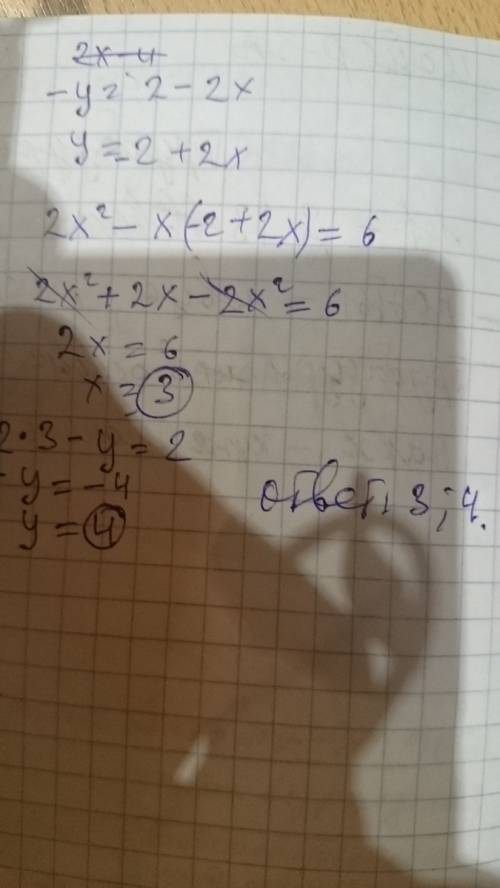 2x-4
-y = 2 - 2x
y = -2 + 2x
2x² - x(-2 + 2x) = 6
2x² + 2x - 2x² = 6
2x = 6
x = 3
2·3 - y = 2
-y = -4
y = 4
ответ: 3; 4.